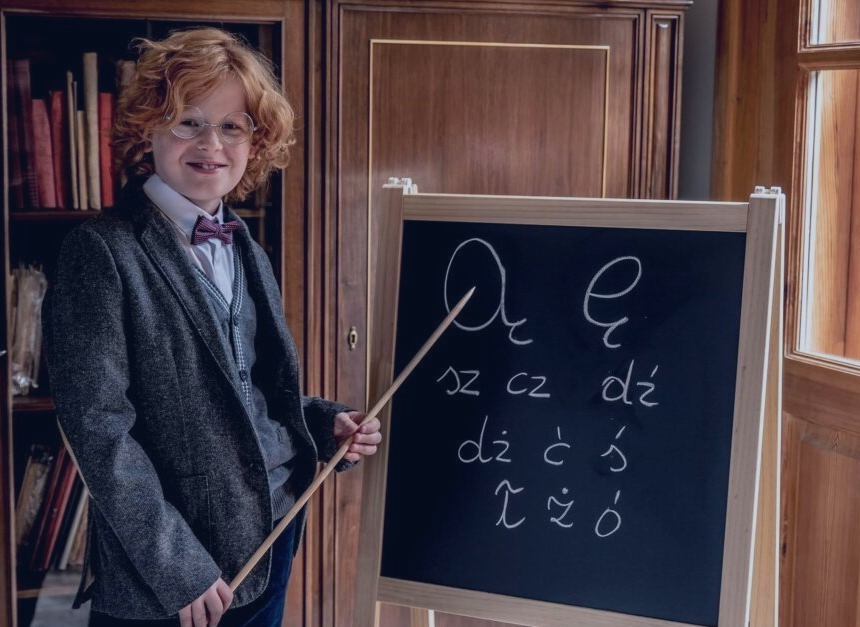 Ą Ę
sz cz dź
dż ć ś
ł ż ó